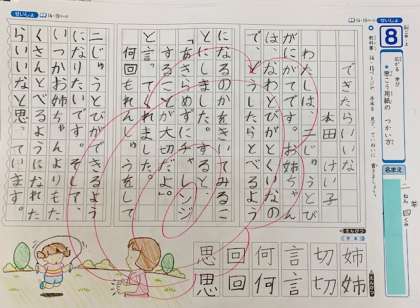 せいしょ
8
広がる 学び
げんこう用紙の つかい方
なまえ
できたらいいな
本田 けい子
わたしは、二じゅうとび
がにがてです。お姉ちゃん
は、なわとびがとくいなの
で、どうしたらとべるよう
になるのかをきいてみるこ
とにしました。すると、
「あきらめずにチャレンジ
することが大切だよ。」
と言ってくれました。
何回もれんしゅうをして
二じゅうとびができるよう
になりたいです。そして、
いつかお姉ちゃんよりもた
くさんとべるようになれた
らいいなと思っています。
せいしょ
姉 姉
切 切
言 言
何 何
回 回
思 思